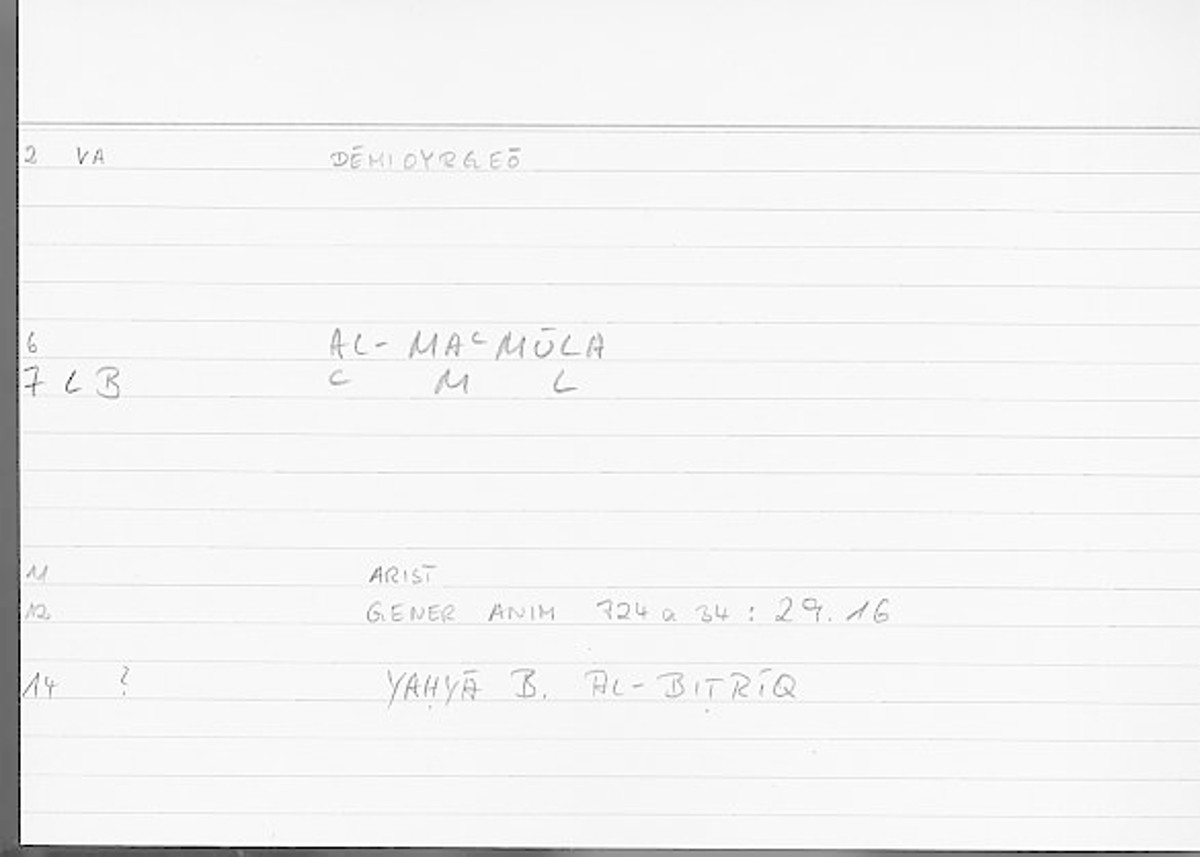 2 VA DĒMIOYRGEŌ
6 AL-MAᶜMŪLA
7 L B ᶜ M L
11 ARIST
12 GENER ANIM 724 a 34 : 29.16
14 ? YAḤYĀ B. AL-BIṬRĪQ